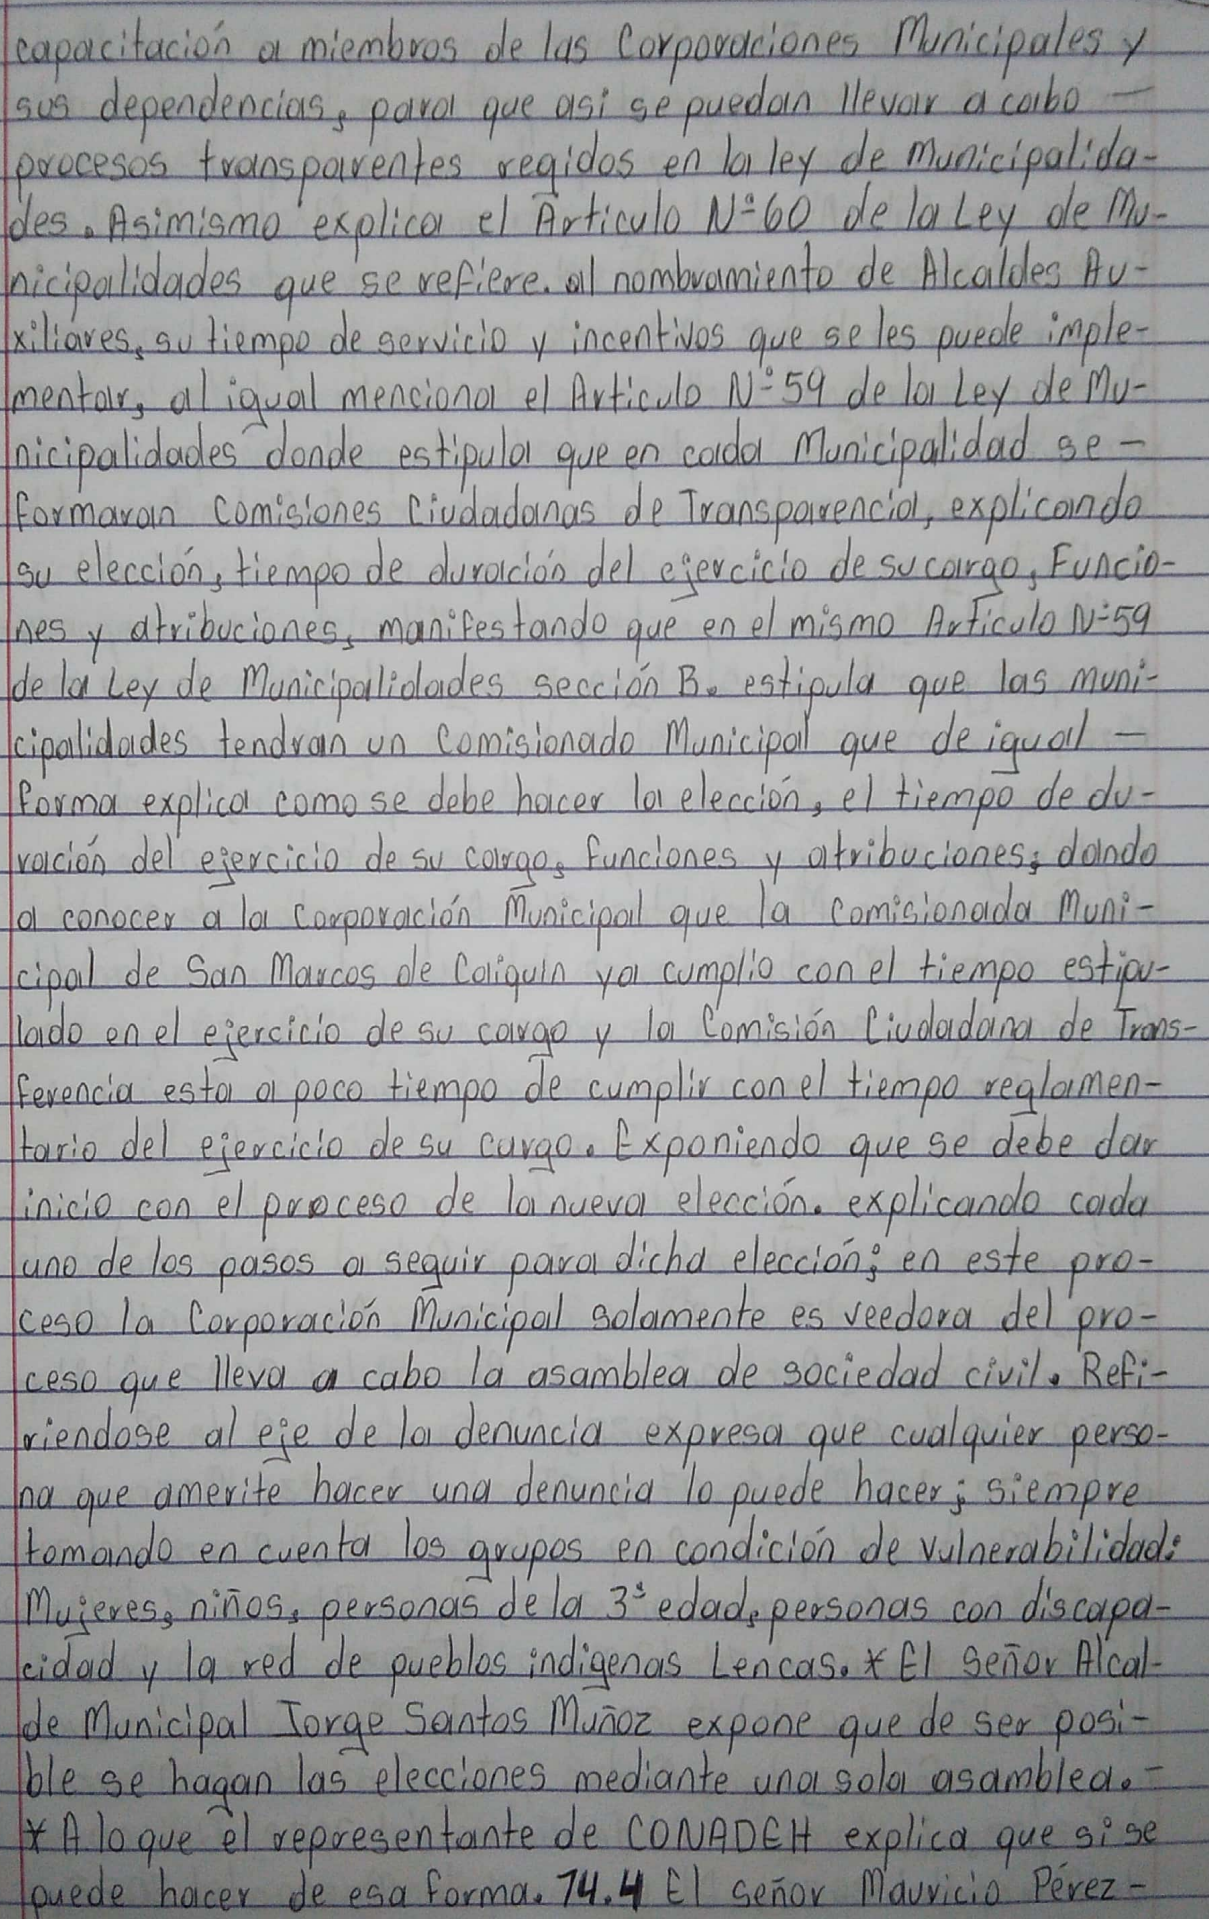 capacitación a miembros de las Corporaciones Municipales y
sus dependencias, para que asi se puedan llevar a cabo —
procesos transparentes regidos en la ley de Municipalida-
des. Asimismo explica el Articulo Nº 60 de la Ley de Mu-
nicipalidades que se refiere. al nombramiento de Alcaldes Au-
xiliares, su tiempo de servicio y incentivos que se les puede imple-
mentar, al igual menciona el Articulo Nº 59 de la Ley de Mu-
nicipalidades donde estipula que en cada Municipalidad se —
formaran Comisiones Ciudadanas de Transparencia, explicando
su elección, tiempo de duración del ejercicio de su cargo, Funcio-
nes y atribuciones, manifestando que en el mismo Articulo Nº 59
de la Ley de Municipalidades sección B. estipula que las muni-
cipalidades tendran un Comisionado Municipal que de igual —
forma explica como se debe hacer la elección, el tiempo de du-
ración del ejercicio de su cargo, funciones y atribuciones; dando
a conocer a la Corporación Municipal que la Comisionada Muni-
cipal de San Marcos de Caiquin ya cumplio con el tiempo estipu-
lado en el ejercicio de su cargo y la Comisión Ciudadana de Trans-
ferencia esta a poco tiempo de cumplir con el tiempo reglamen-
tario del ejercicio de su cargo. Exponiendo que se debe dar
inicio con el proceso de la nueva elección. explicando cada
uno de los pasos a seguir para dicha elección; en este pro-
ceso la Corporación Municipal solamente es veedora del pro-
ceso que lleva a cabo la asamblea de sociedad civil. Refi-
riendose al eje de la denuncia expresa que cualquier perso-
na que amerite hacer una denuncia lo puede hacer; siempre
tomando en cuenta los grupos en condición de vulnerabilidad:
Mujeres, niños, personas de la 3ª edad, personas con discapa-
cidad y la red de pueblos indigenas Lencas. * El señor Alcal-
de Municipal Jorge Santos Muñoz expone que de ser posi-
ble se hagan las elecciones mediante una sola asamblea. —
* A lo que el representante de CONADEH explica que si se
puede hacer de esa forma. 14.4 El señor Mauricio Pérez —